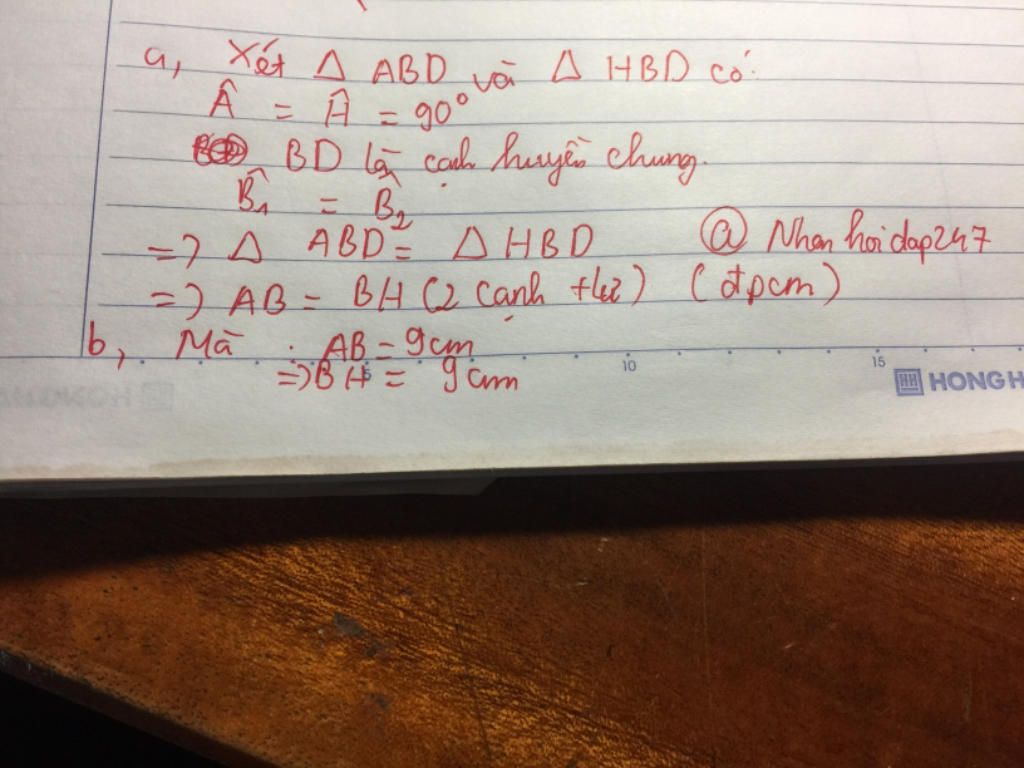 a, Xét Δ ABD và Δ HBD có:
Â = Ĥ = 90°
BD là cạnh huyền chung.
B̂₁ = B̂₂
=> Δ ABD = Δ HBD @ Nhanhoidap247
=> AB = BH (2 cạnh t/ư) (đpcm)
b, Mà : AB = 9cm
=> BH = 9cm
5 10 15
HH HONG H